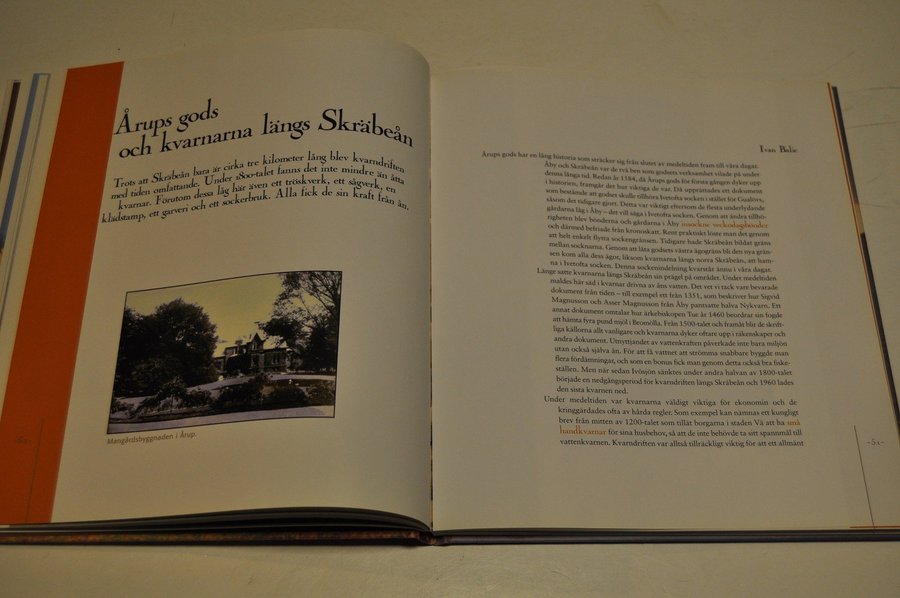 Årups gods
och kvarnarna längs Skräbeån
Trots att Skräbeån bara är cirka tre kilometer lång blev kvarndriften
med tiden omfattande. Under 1800-talet fanns det inte mindre än åtta
kvarnar. Förutom dessa låg här även ett tröskverk, ett sågverk, en
klädstamp, ett garveri och ett sockerbruk. Alla fick de sin kraft från ån.
Mangårdsbyggnaden i Årup.
Ivan Balic
Årups gods har en lång historia som sträcker sig från slutet av medeltiden fram till våra dagar.
Åby och Skräbeån var de två ben som godsets verksamhet vilade på under
denna långa tid. Redan år 1384, då Årups gods för första gången dyker upp
i historien, framgår det hur viktiga de var. Då upprättades ett dokument
som bestämde att godset skulle tillhöra Ivetofta socken i stället för Gualövs,
såsom det tidigare gjort. Detta var viktigt eftersom de flesta underlydande
gårdarna låg i Åby – det vill säga i Ivetofta socken. Genom att ändra tillhö-
righeten blev bönderna och gårdarna i Åby insockne veckodagsbönder
och därmed befriade från kronoskatt. Rent praktiskt löste man det genom
att helt enkelt flytta sockengränsen. Tidigare hade Skräbeån bildat gräns
mellan socknarna. Genom att låta godsets västra ägogräns bli den nya grän-
sen kom alla dess ägor, liksom kvarnarna längs norra Skräbeån, att ham-
na i Ivetofta socken. Denna sockenindelning kvarstår ännu i våra dagar.
Länge satte kvarnarna längs Skräbeån sin prägel på området. Under medeltiden
maldes här säd i kvarnar drivna av åns vatten. Det vet vi tack vare bevarade
dokument från tiden – till exempel ett från 1351, som beskriver hur Sigvid
Magnusson och Asser Magnusson från Åby pantsatte halva Nykvarn. Ett
annat dokument omtalar hur ärkebiskopen Tue år 1460 beordrar sin fogde
att hämta fyra pund mjöl i Bromölla. Från 1500-talet och framåt blir de skrift-
liga källorna allt vanligare och kvarnarna dyker oftare upp i räkenskaper och
andra dokument. Utnyttjandet av vattenkraften påverkade inte bara miljön
utan också själva ån. För att få vattnet att strömma snabbare byggde man
flera fördämningar, och som en bonus fick man genom detta också bra fiske-
ställen. Men när sedan Ivösjön sänktes under andra halvan av 1800-talet
började en nedgångsperiod för kvarndriften längs Skräbeån och 1960 lades
den sista kvarnen ned.
Under medeltiden var kvarnarna väldigt viktiga för ekonomin och de
kringgärdades ofta av hårda regler. Som exempel kan nämnas ett kungligt
brev från mitten av 1200-talet som tillät borgarna i staden Vä att ha små
handkvarnar för sina husbehov, så att de inte behövde ta sitt spannmål till
vattenkvarnen. Kvarndriften var alltså tillräckligt viktig för att ett allmänt
-51-